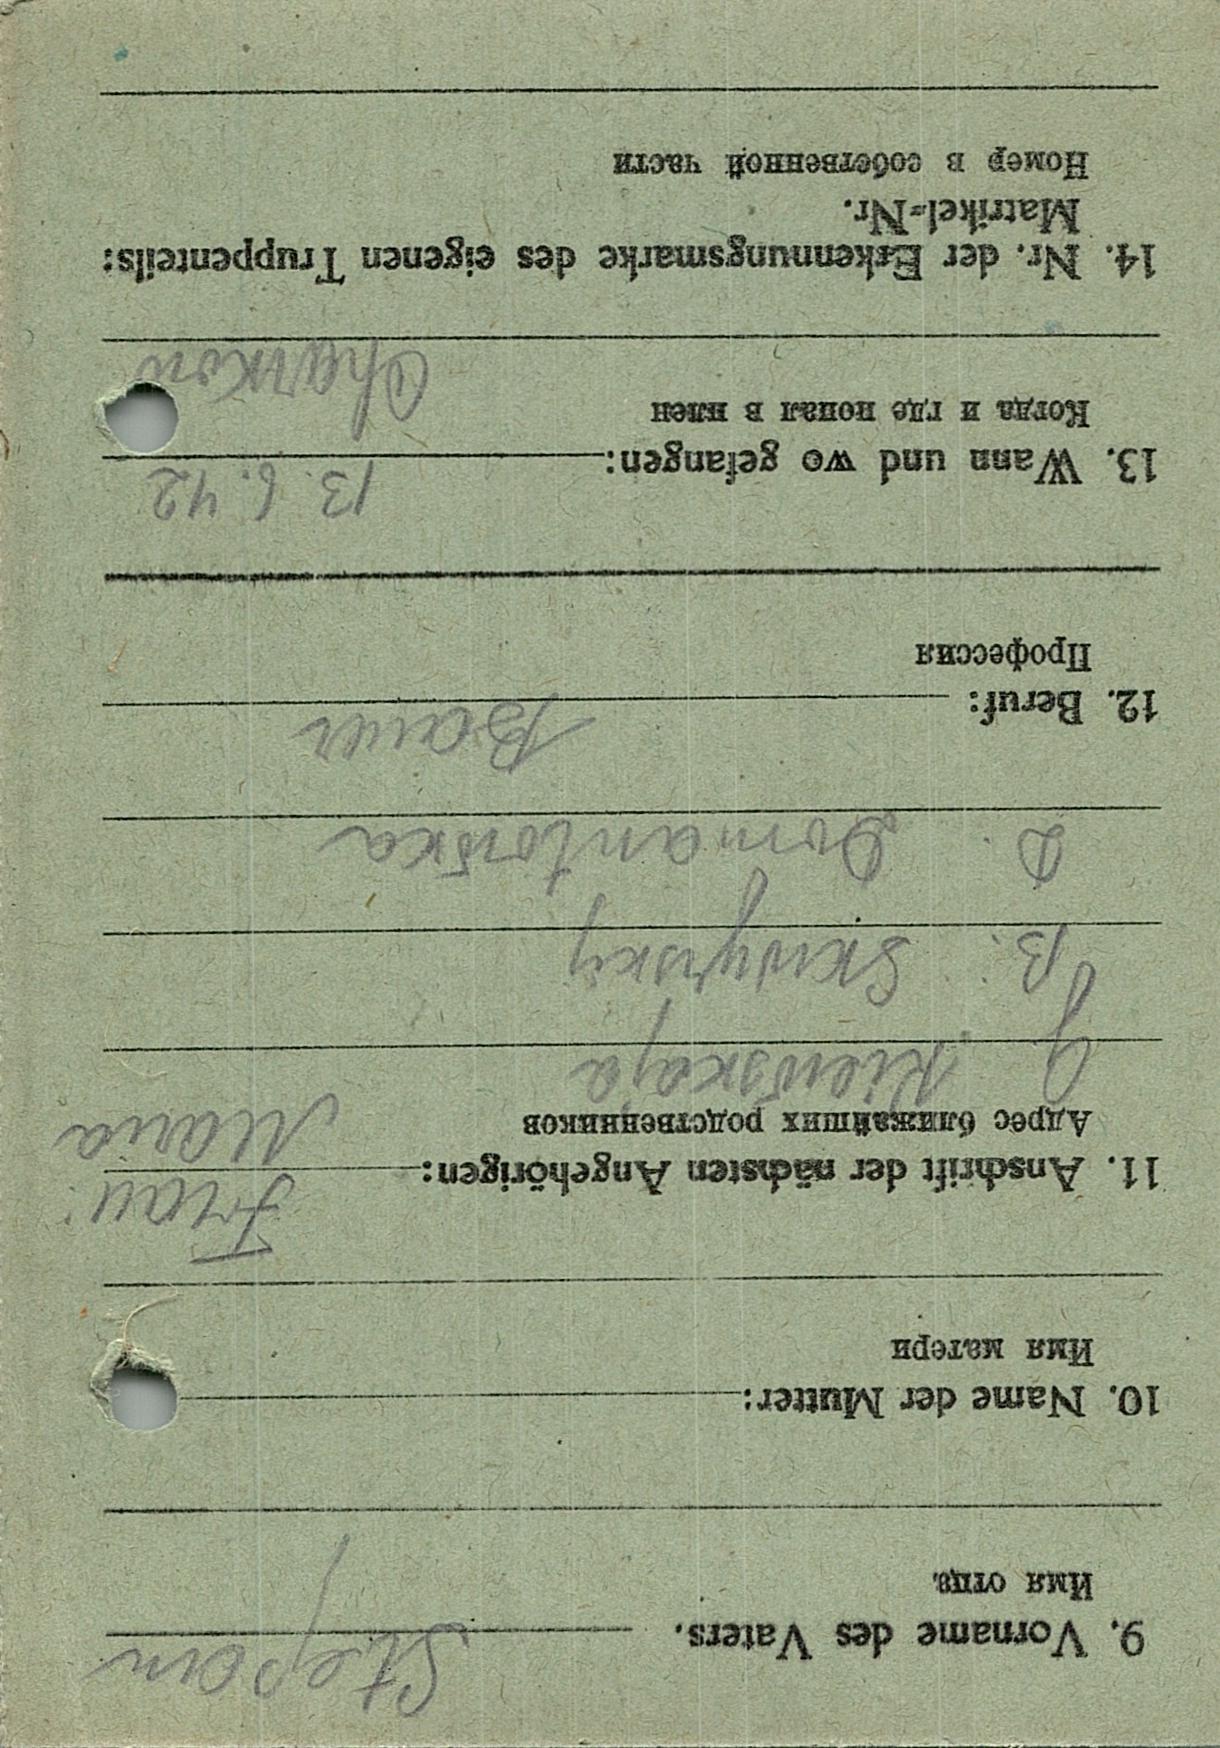 9. Vorname des Vaters. Stepan
Имя отца
10. Name der Mutter:
Имя матери
11. Anschrift der nächsten Angehörigen: Frau:
Адрес ближайших родственников Maria
G. Kiewskaja
B. Skwyrskij
D. Domantowka
12. Beruf: Bauer
Профессия
13. Wann und wo gefangen: 13. 6. 42
Когда и где попал в плен Charkow
14. Nr. der Erkennungsmarke des eigenen Truppenteils:
Matrikel-Nr.
Номер в собственной части